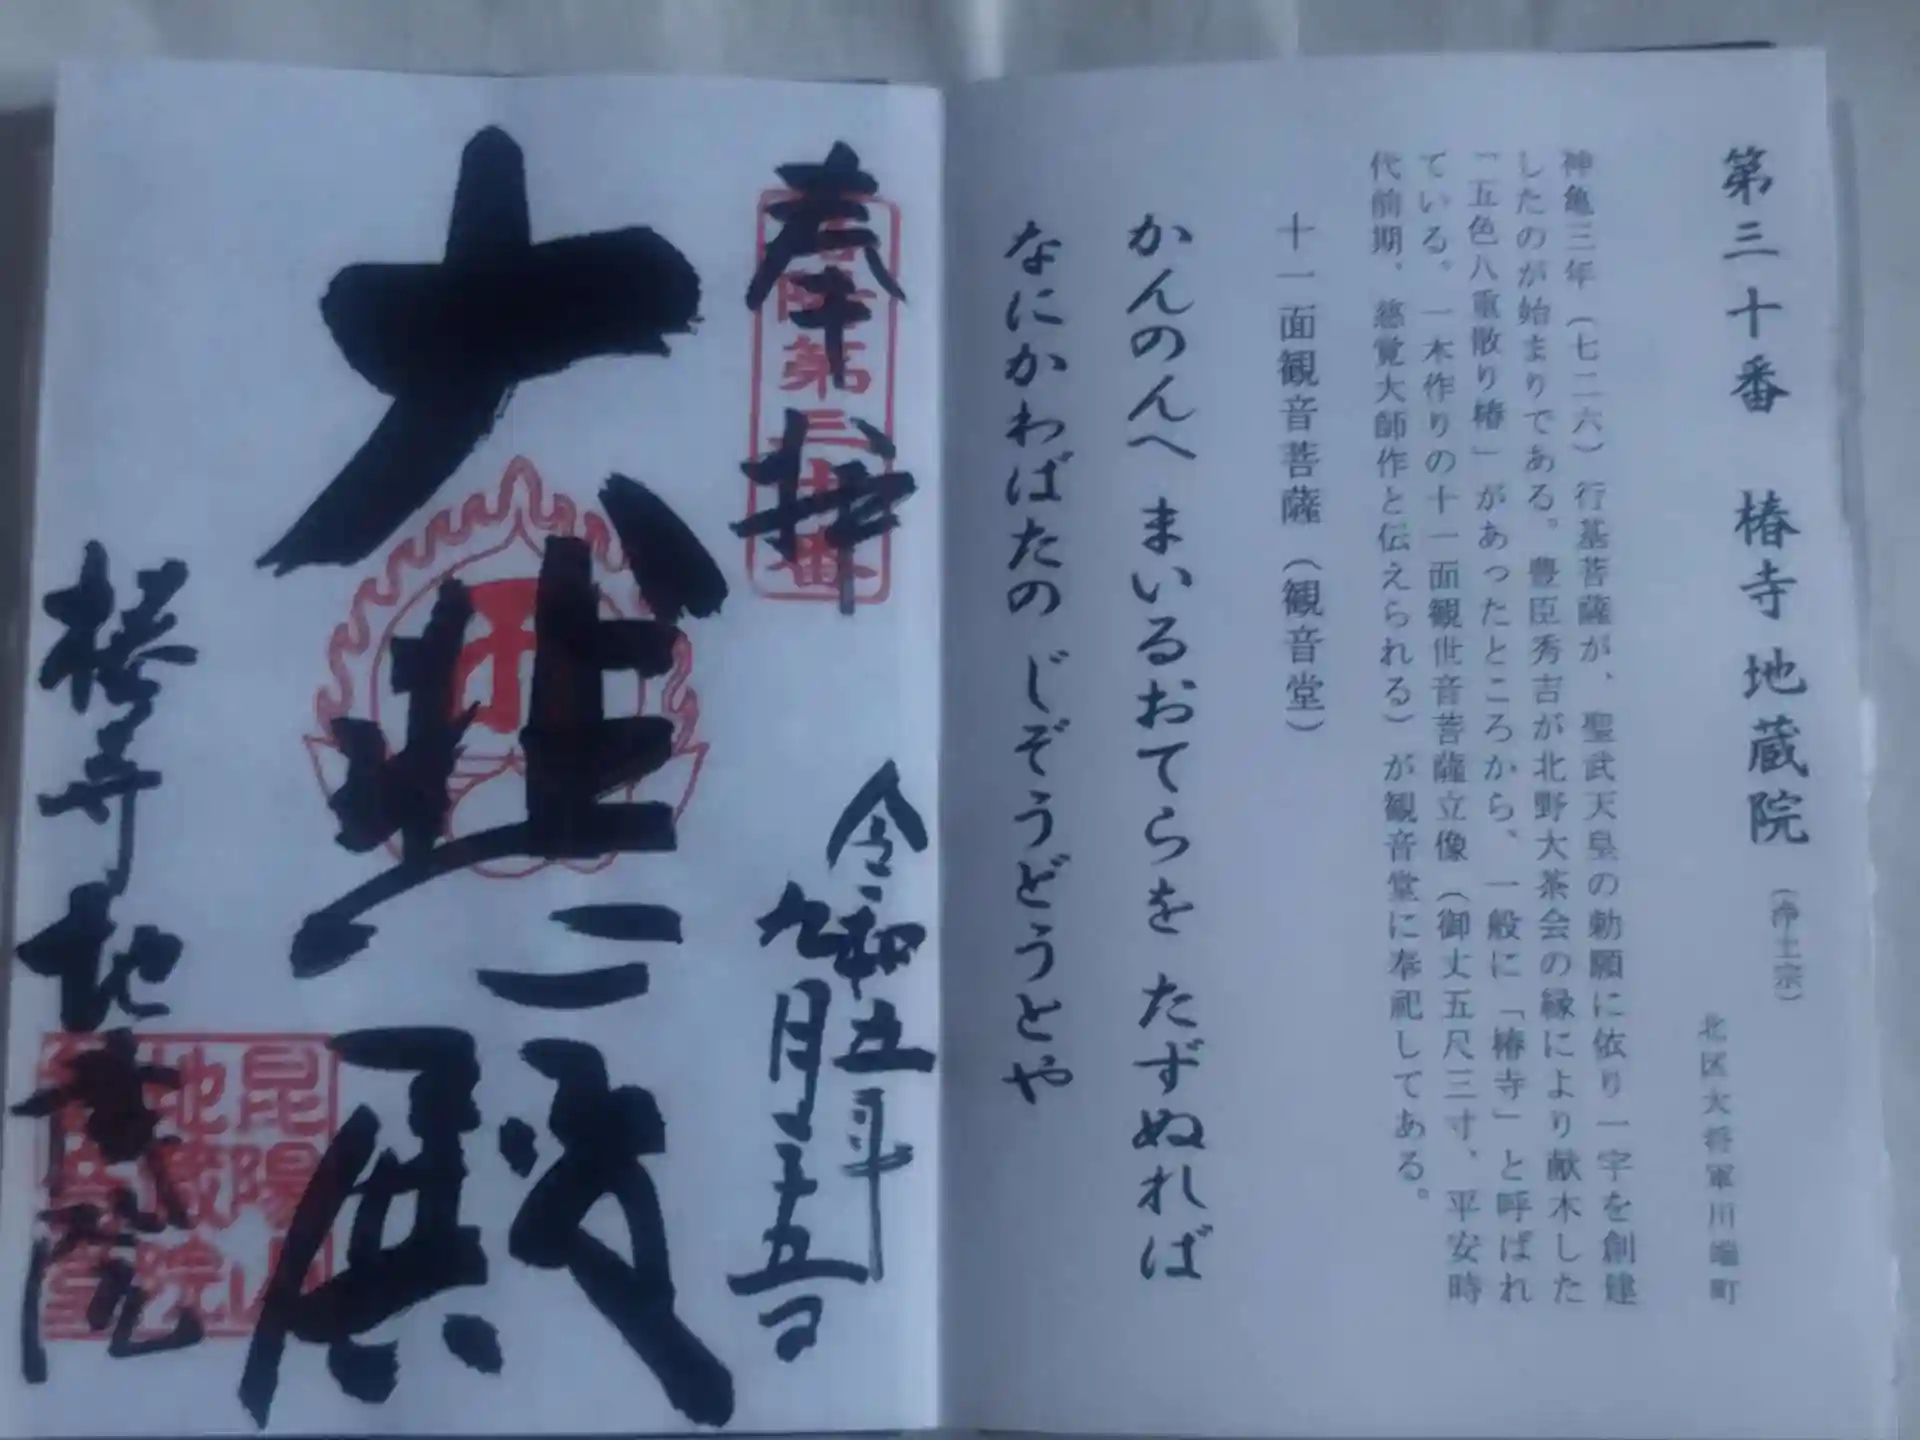 第三十番 椿寺地蔵院 (浄土宗)
北区大将軍川端町
神亀三年(七二六)行基菩薩が、聖武天皇の勅願に依り一宇を創建
したのが始まりである。豊臣秀吉が北野大茶会の縁により献木した
「五色八重散り椿」があったところから、一般に「椿寺」と呼ばれ
ている。一木作りの十一面観世音菩薩立像(御丈五尺三寸、平安時
代前期、慈覚大師作と伝えられる)が観音堂に奉祀してある。
十一面観音菩薩(観音堂)
かんのんへ まいるおてらを たずぬれば
なにかわばたの じぞうどうとや
奉拝
洛陽第三十番
令和五年
九月二十五日
大悲殿
椿寺地蔵院
昆陽山
地蔵院